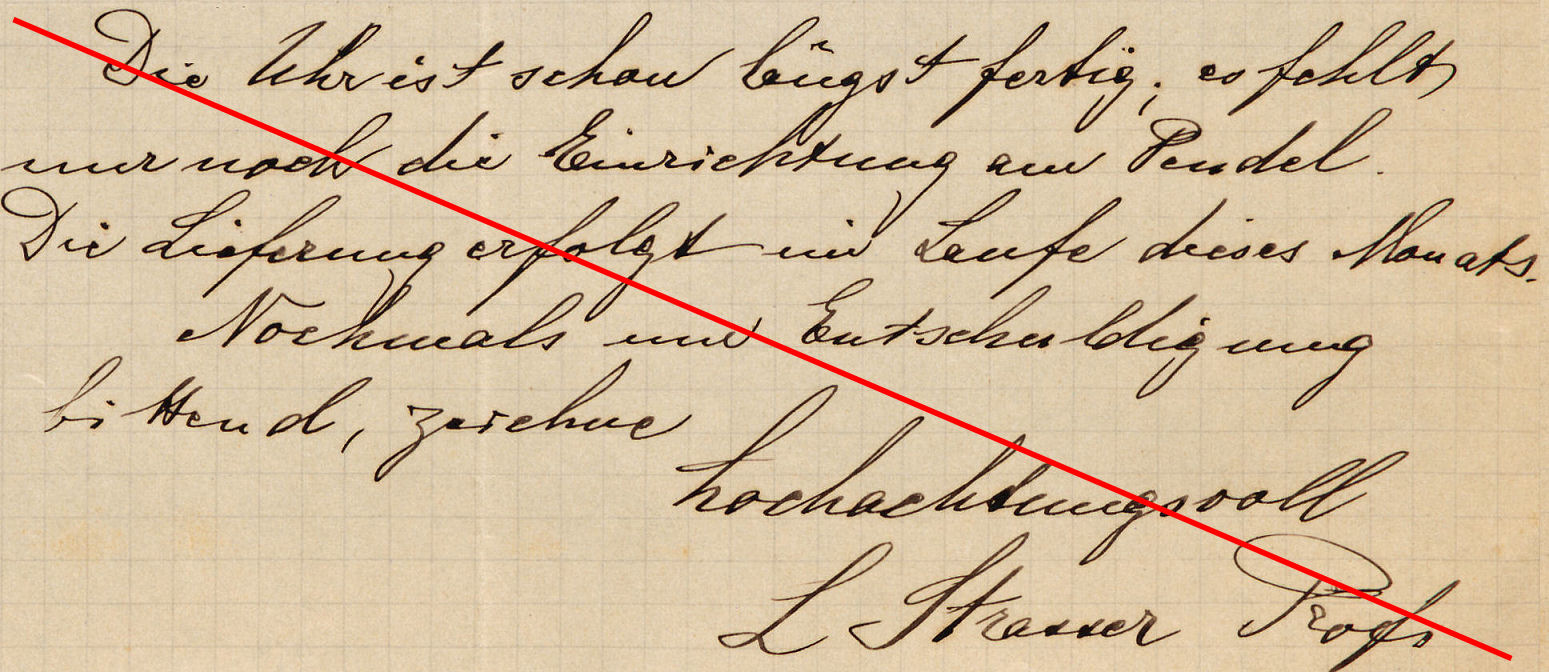 Die Uhr ist schon längst fertig; es fehlt
nur noch die Einrichtung am Pendel.
Die Lieferung erfolgt im Laufe dieses Monats.
Nochmals um Entschuldigung
bittend, zeichne
hochachtungsvoll
L Strasser Profs